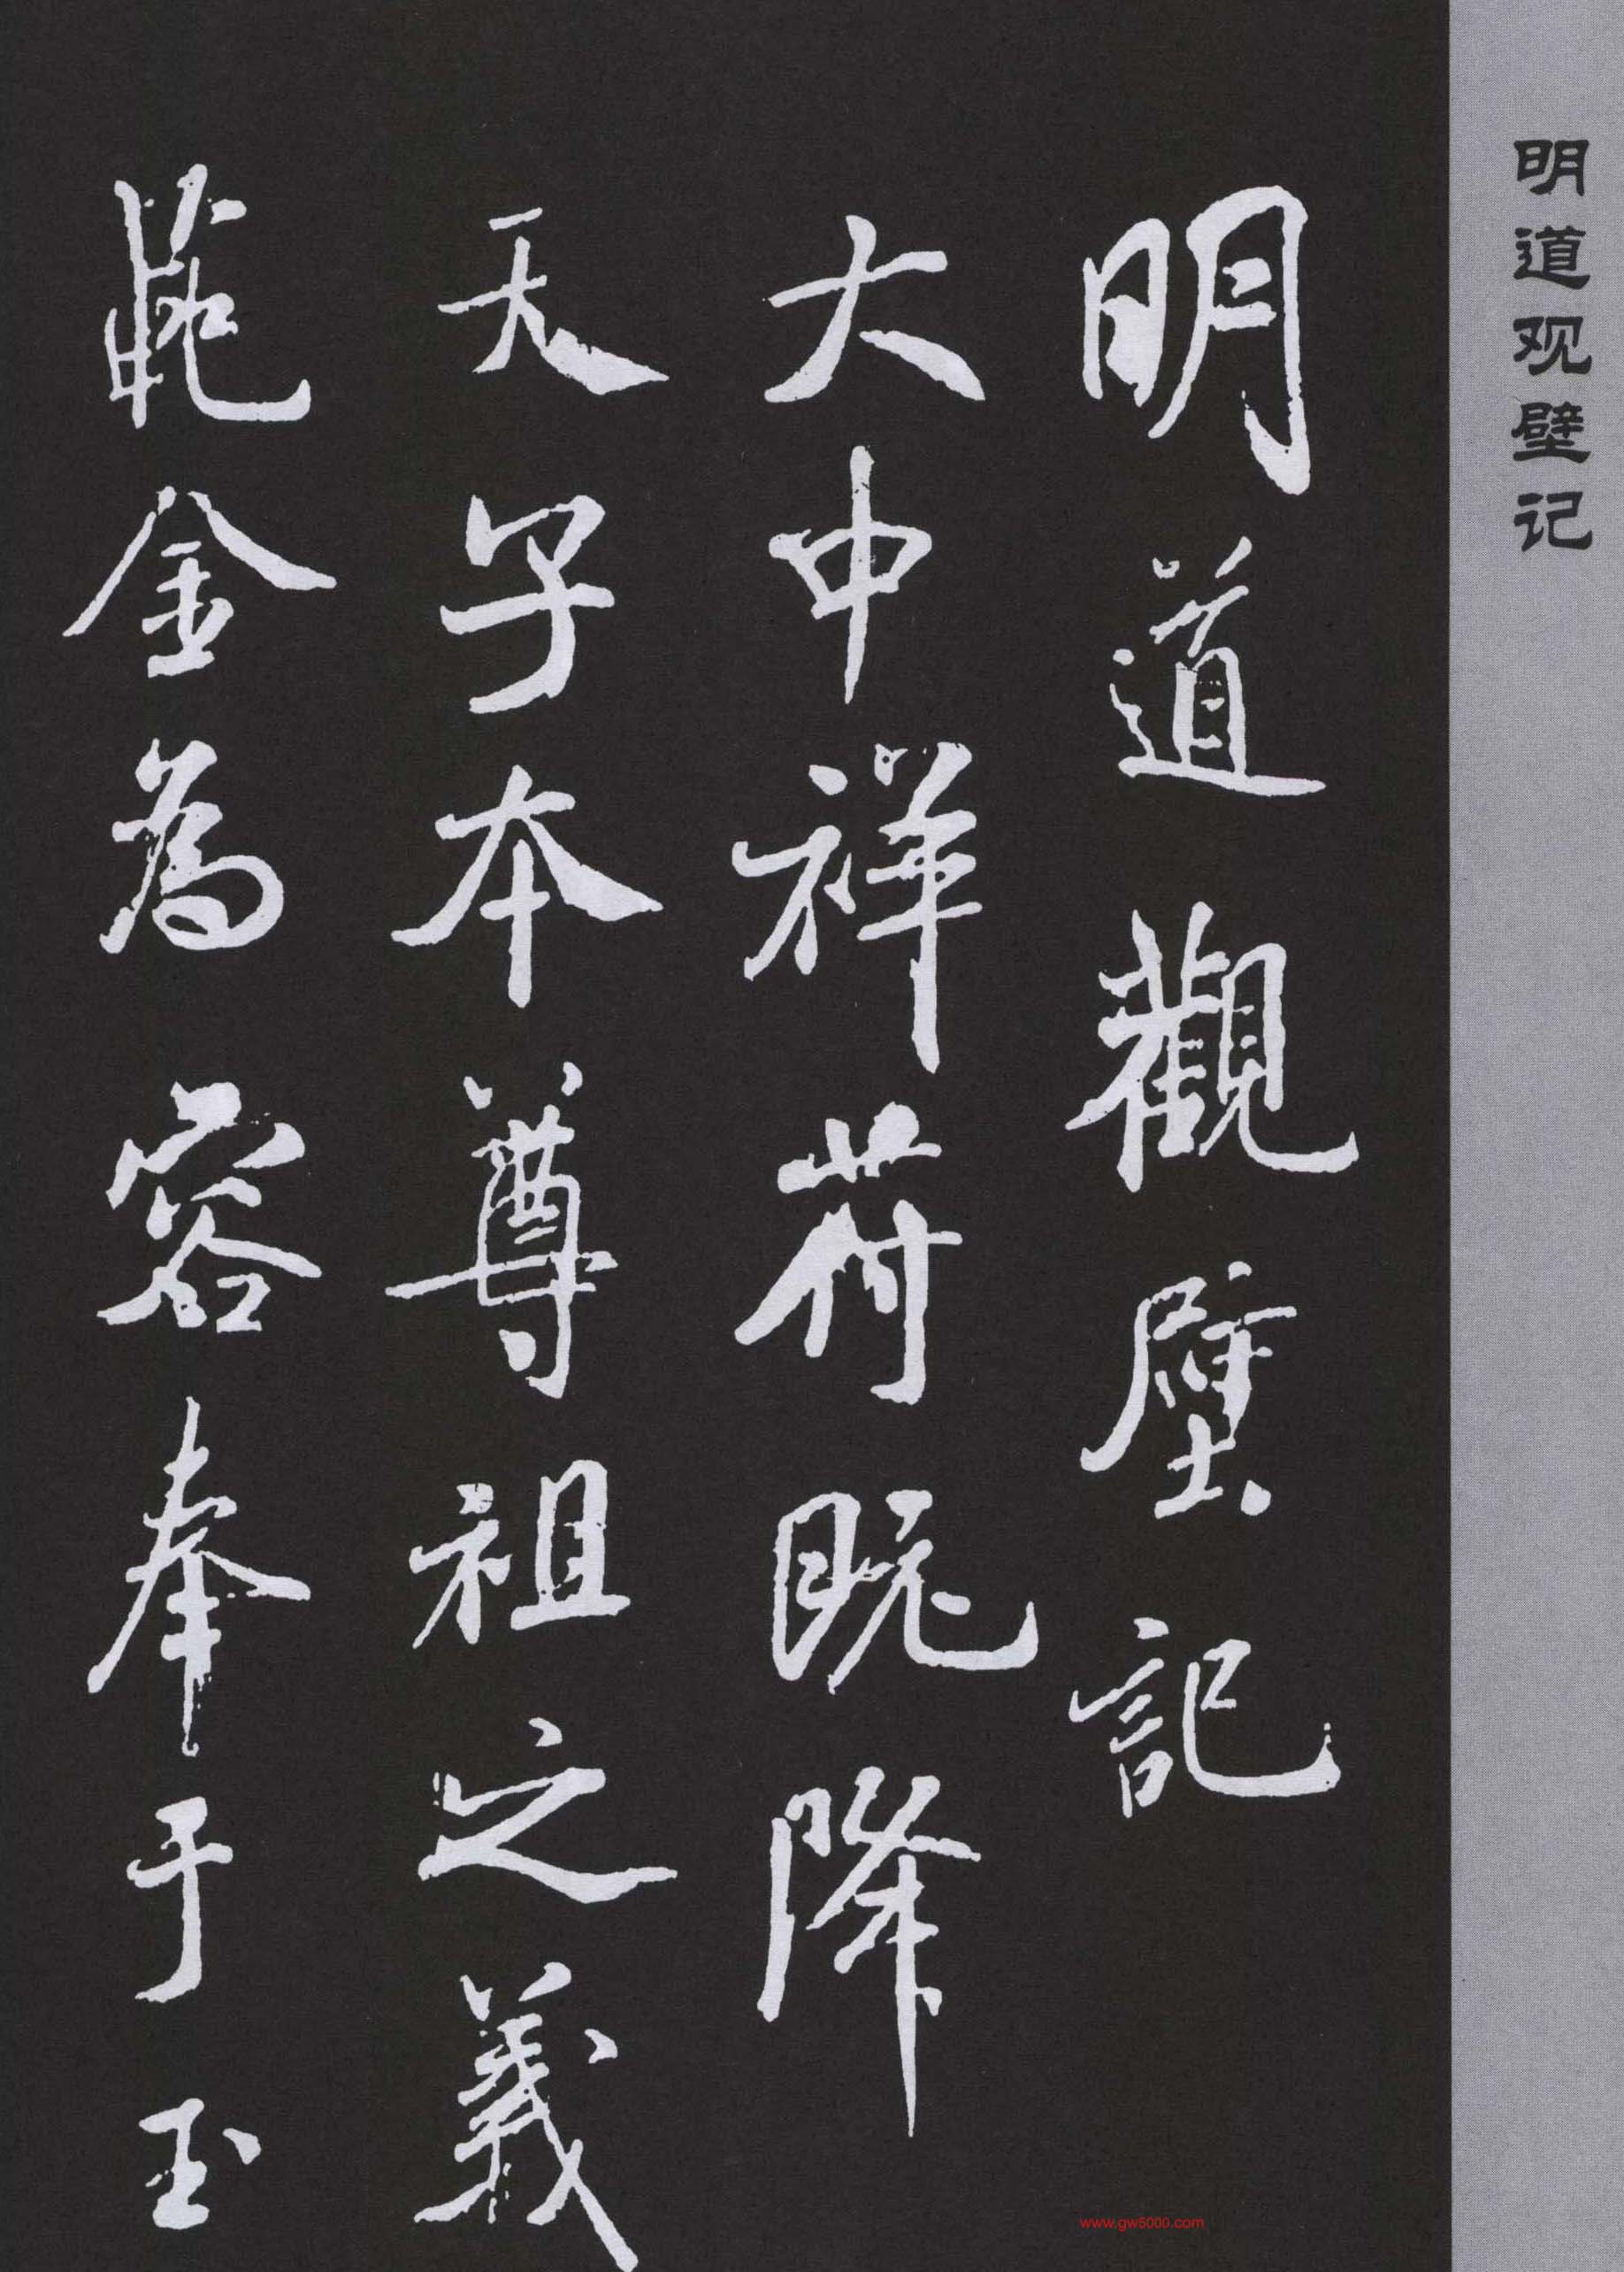 明道观壁记
明道觀壁記
大中祥符既降
天子本尊祖之義
範金為容奉于玉
www.gw5000.com